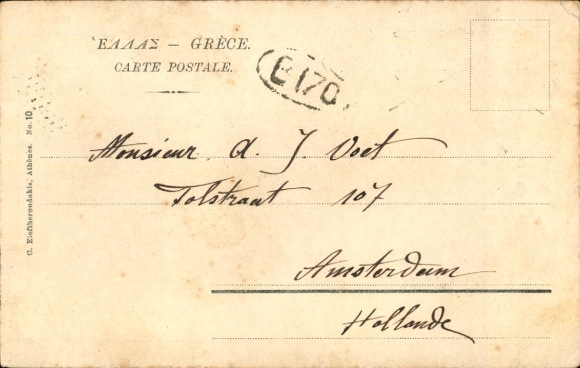 ἙΛΛΑΣ – GRÈCE.
CARTE POSTALE.
B170
Monsieur A. J. Voet
Tolstraat 107
Amsterdam
Hollande
C. Eleftheroudakis, Athènes. No. 10.